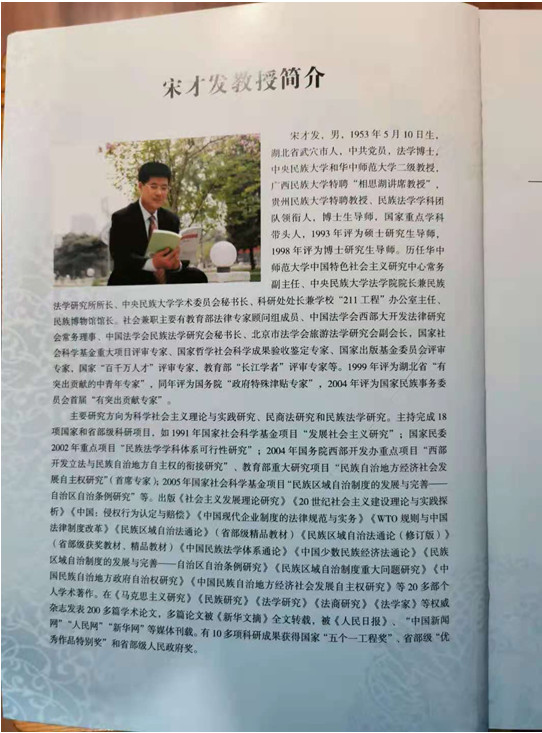 宋才发教授简介
宋才发，男，1953年5月10日生，
湖北省武穴市人，中共党员，法学博士，
中央民族大学和华中师范大学二级教授，
广西民族大学特聘“相思湖讲席教授”，
贵州民族大学特聘教授、民族法学学科团
队领衔人，博士生导师，国家重点学科
带头人，1993年评为硕士研究生导师，
1998年评为博士研究生导师。历任华中
师范大学中国特色社会主义研究中心常务
副主任、中央民族大学法学院院长兼民族
法学研究所所长、中央民族大学学术委员会秘书长，科研处处长兼学校“211工程”办公室主任、
民族博物馆馆长。社会兼职主要有教育部法律专家顾问组成员、中国法学会西部大开发法律研究
会常务理事、中国法学会民族法学研究会秘书长、北京市法学会旅游法学研究会副会长，国家社
会科学基金重大项目评审专家、国家哲学社会科学成果验收鉴定专家、国家出版基金委员会评审
专家，国家“百千万人才”评审专家，教育部“长江学者”评审专家等。1999年评为湖北省“有
突出贡献的中青年专家”，同年评为国务院“政府特殊津贴专家”，2004年评为国家民族事务委
员会首届“有突出贡献专家”。
主要研究方向为科学社会主义理论与实践研究、民商法研究和民族法学研究。主持完成18
项国家和省部级科研项目，如1991年国家社会科学基金项目“发展社会主义研究”；国家民委
2002年重点项目“民族法学学科体系可行性研究”；2004年国务院西部开发办重点项目“西部
开发立法与民族自治地方自主权的衔接研究”、教育部重大研究项目“民族自治地方经济社会发
展自主权研究”（首席专家）；2005年国家社会科学基金项目“民族区域自治制度的发展与完善——
自治区自治条例研究”等。出版《社会主义发展理论研究》《20世纪社会主义建设理论与实践探
析》《中国：侵权行为认定与赔偿》《中国现代企业制度的法律规范与实务》《WTO规则与中国
法律制度改革》《民族区域自治法通论》（省部级精品教材）《民族区域自治法通论（修订版）》
（省部级获奖教材、精品教材）《中国民族法学体系通论》《中国少数民族经济法通论》《民族
区域自治制度的发展与完善——自治区自治条例研究》《民族区域自治制度重大问题研究》《中
国民族自治地方政府自治权研究》《中国民族自治地方经济社会发展自主权研究》等20多部个
人学术著作。在《马克思主义研究》《民族研究》《法学研究》《法商研究》《法学家》等权威
杂志发表200多篇学术论文，多篇论文被《新华文摘》全文转载，被《人民日报》、“中国新闻
网”“人民网”“新华网”等媒体刊载。有10多项科研成果获得国家“五个一工程奖”、省部级“优
秀作品特别奖”和省部级人民政府奖。